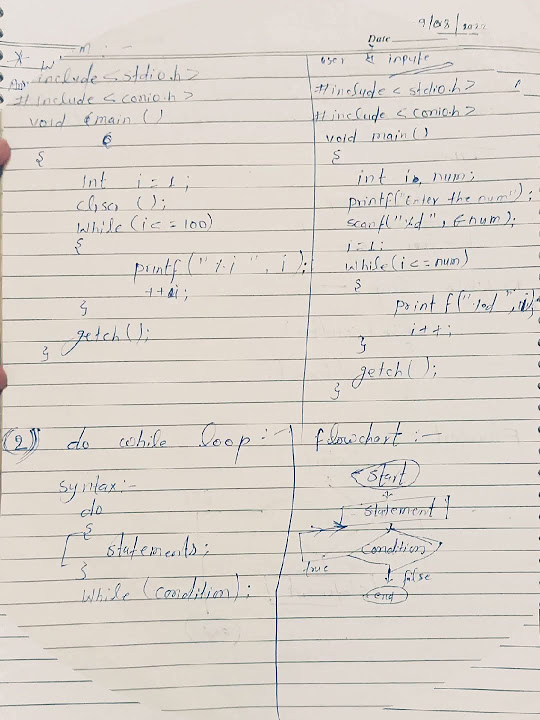 9/08/2022
Date
user से inpute
Ans include <stdio.h>
# include <conio.h>
void main ()
{
int i = 1;
clrscr ();
while (i <= 100)
{
printf ("%i", i);
++i;
}
getch();
}
#include <stdio.h>
#include <conio.h>
void main()
{
int i, num;
printf("Enter the num");
scanf("%d", &num);
i=1;
while(i<=num)
{
print f("%d",i);
i++;
}
getch();
}
(2) do while loop :-
syntax:-
do
{
statements;
}
while (condition);
flowchart :-
start
statement
condition
true
false
end